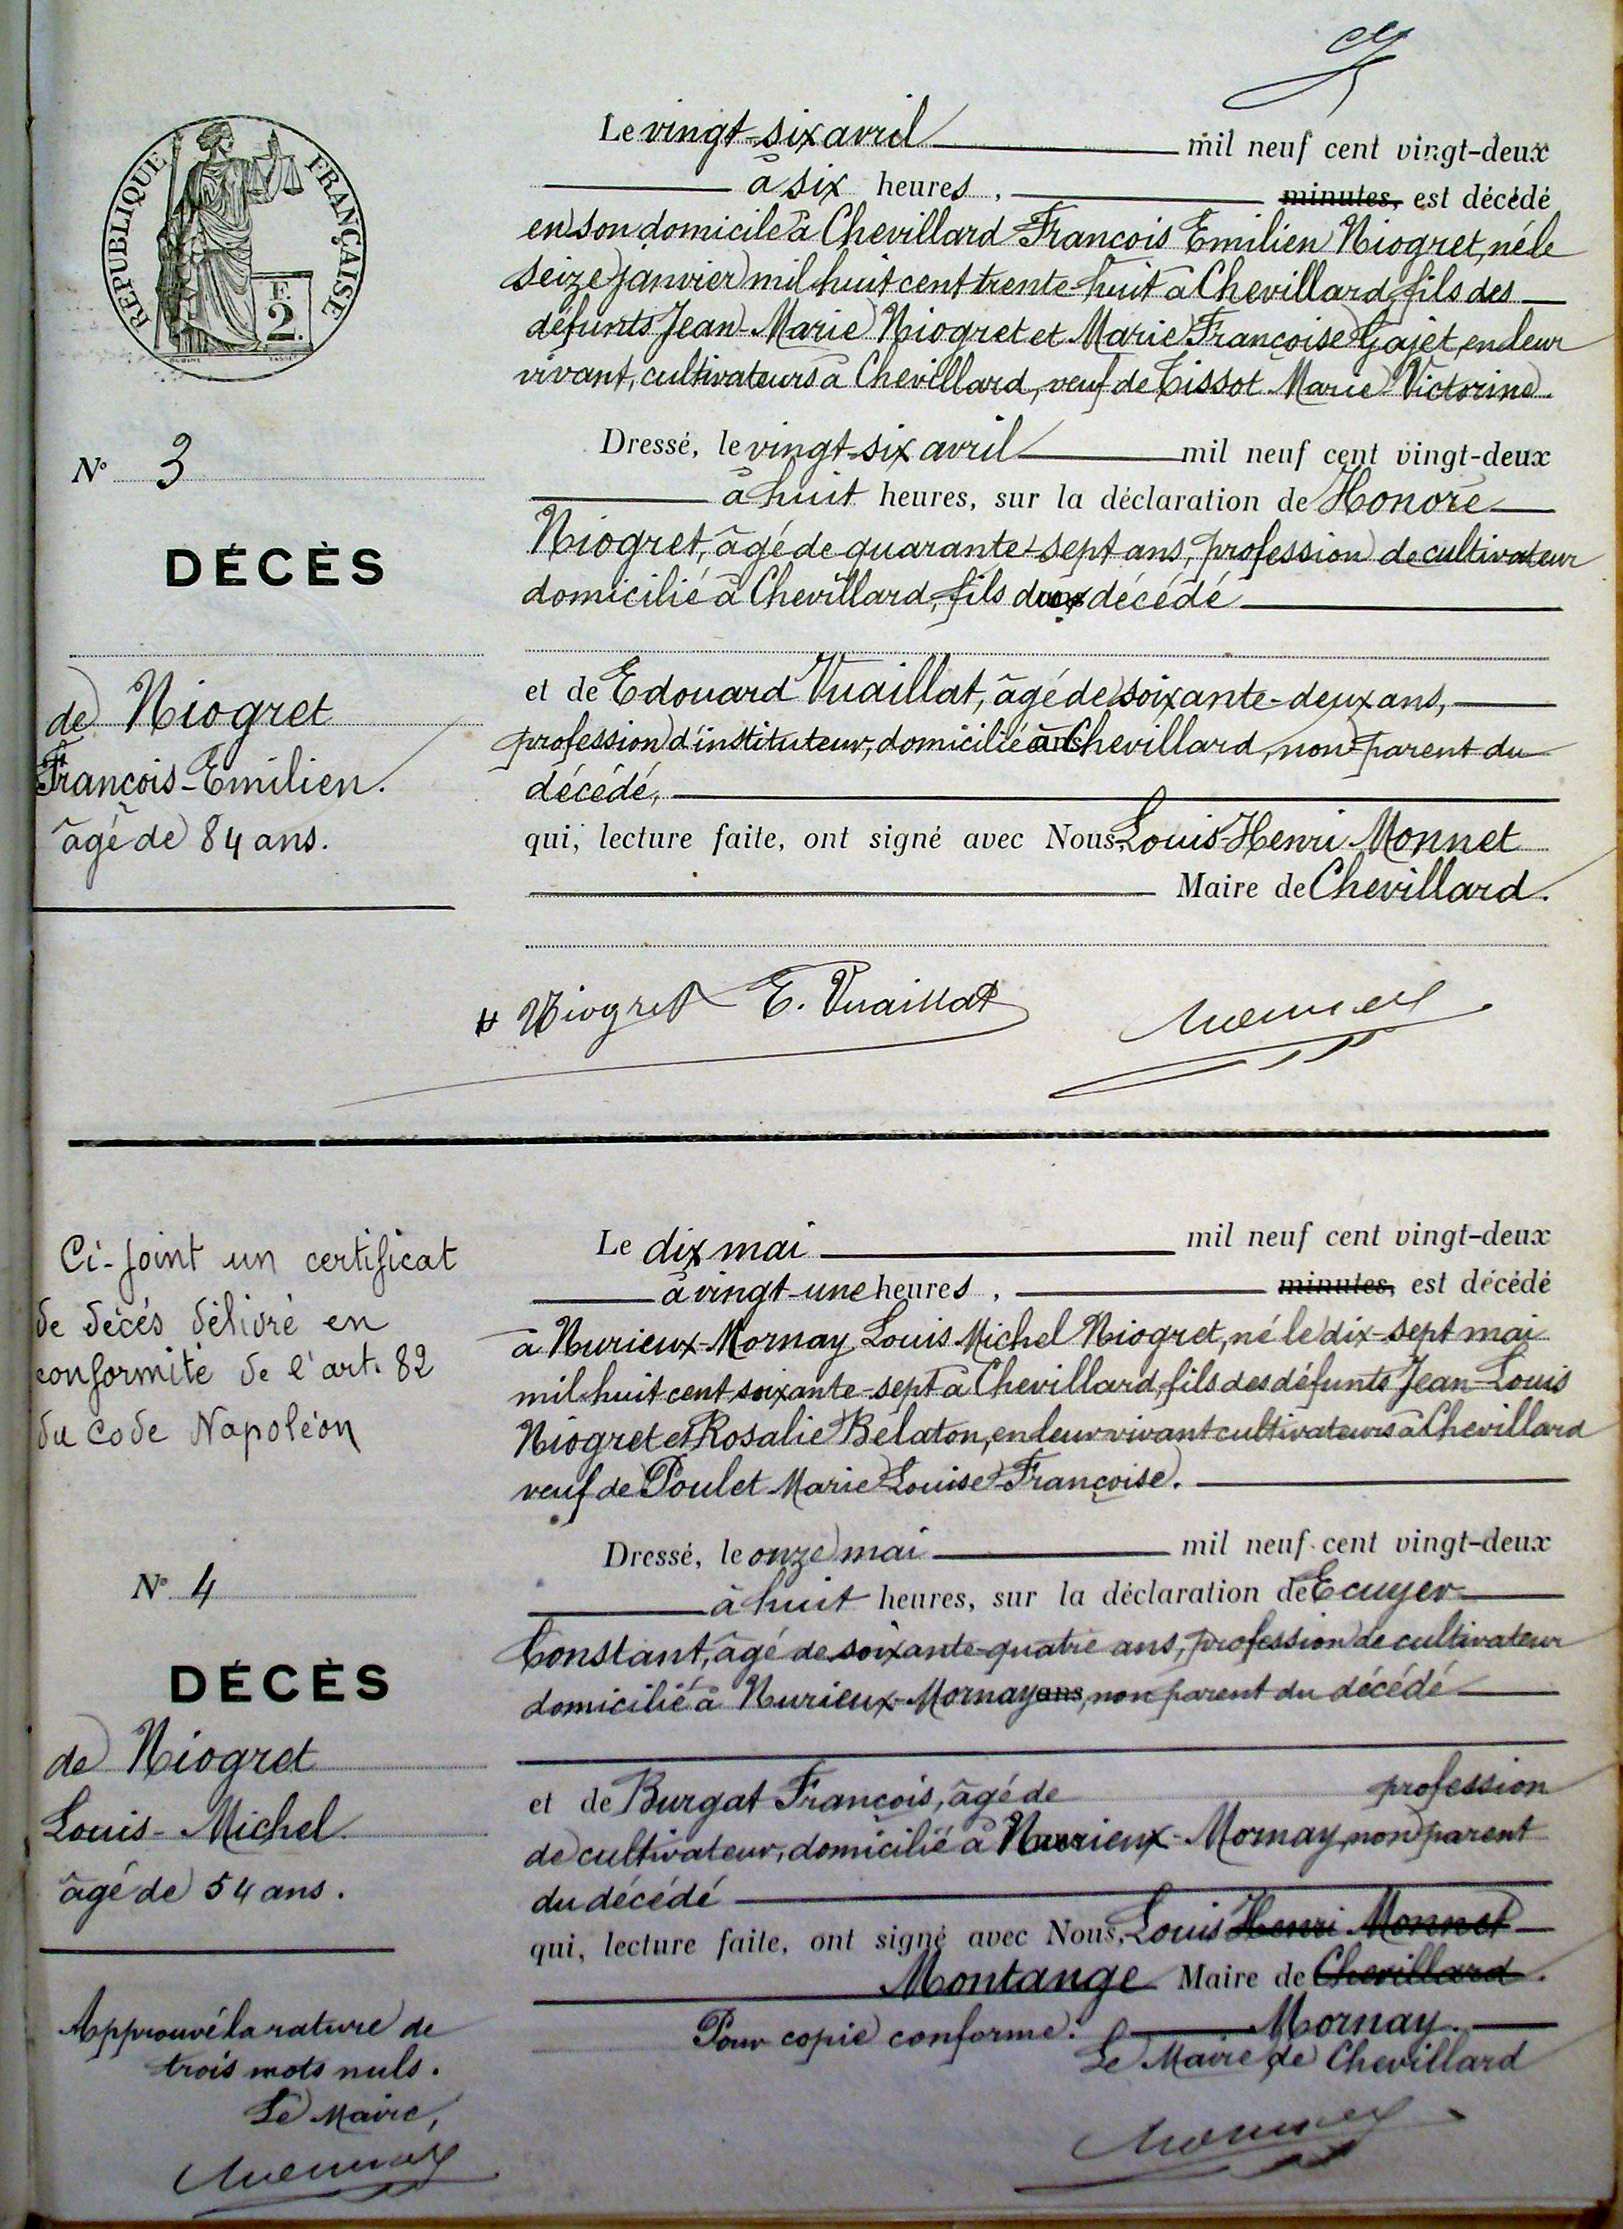 RÉPUBLIQUE FRANÇAISE
F.
2.
Le vingt-six avril mil neuf cent vingt-deux
à six heures, minutes, est décédé
en son domicile à Chevillard François Emilien Niogret, né le
seize janvier mil huit cent trente-huit à Chevillard, fils des
défunts Jean-Marie Niogret et Marie Françoise Gajet, en leur
vivant, cultivateurs à Chevillard, veuf de Tissot Marie Victorine.
Dressé, le vingt-six avril mil neuf cent vingt-deux
à huit heures, sur la déclaration de Honoré
Niogret, âgé de quarante-sept ans, profession de cultivateur
domicilié à Chevillard, fils du décédé
et de Edouard Vuaillat, âgé de soixante-deux ans,
profession d'instituteur, domicilié à Chevillard, non parent du
décédé,
qui, lecture faite, ont signé avec Nous, Louis-Henri Monnet
Maire de Chevillard.
N° 3
DÉCÈS
de Niogret
François-Emilien.
âgé de 84 ans.
H Niogret E. Vuaillat Monnet
Ci-joint un certificat
de décés délivré en
conformité de l'art. 82
du code Napoléon
N° 4
DÉCÈS
de Niogret
Louis-Michel
âgé de 54 ans.
Approuvé la rature de
trois mots nuls.
Le Maire,
Monnet
Le dix mai mil neuf cent vingt-deux
à vingt-une heures, minutes, est décédé
à Nurieux-Mornay Louis Michel Niogret, né le dix-sept mai
mil huit cent soixante-sept à Chevillard, fils des défunts Jean-Louis
Niogret et Rosalie Bélaton, en leur vivant cultivateurs à Chevillard
veuf de Poulet Marie Louise Françoise.
Dressé, le onze mai mil neuf cent vingt-deux
à huit heures, sur la déclaration de Ecuyer
Constant, âgé de soixante-quatre ans, profession de cultivateur
domicilié à Nurieux-Mornay ans, non parent du décédé
et de Burgat François, âgé de profession
de cultivateur, domicilié à Nurieux-Mornay, non parent
du décédé
qui, lecture faite, ont signé avec Nous, Louis Henri Monnet
Montange Maire de Chevillard.
Pour copie conforme: Mornay.
Le Maire de Chevillard
Monnet